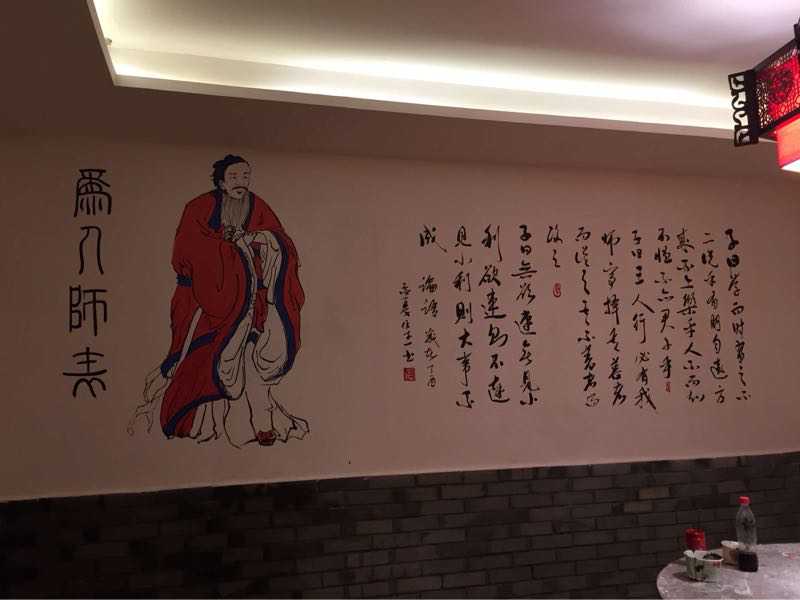 為人師表
子曰学而时習之不
亦说乎有朋自遠方
来不亦樂乎人不而知
不愠不亦君子乎
子曰三人行必有我
师焉择其善者
而从之其不善者而
改之
子曰無欲速無見小
利欲速则不達
見小利則大事不
成
論語 歲在丁酉
书